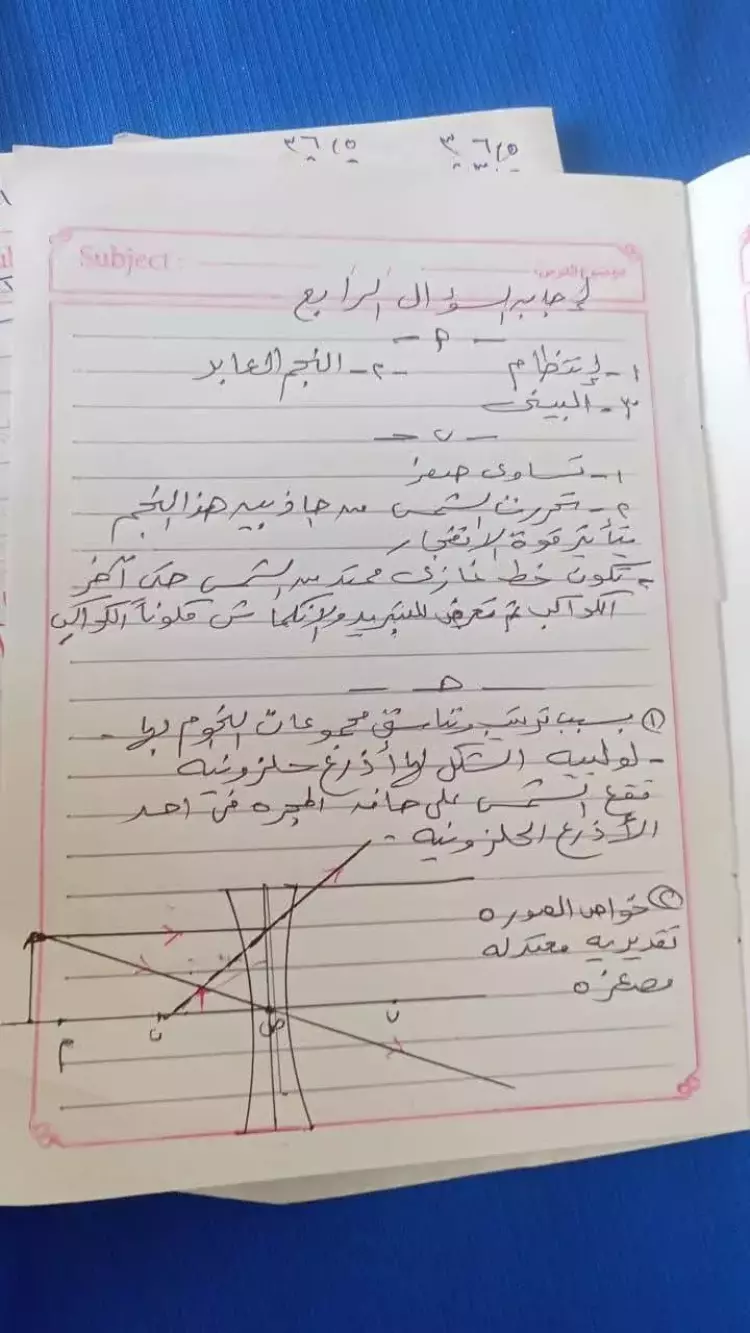 ٣٦٢٥ ٣ ٦٢٥
Subject :
موضوع الدرس:
إجابه السؤال الرابع
- ٩ -
١- إنتظام ٢- النجم العابر
٣- البينى
- ب -
١- تساوى صفر
٢- تحررت الشمس من جاذبيه هذا النجم
بتأثير قوة الانفجار
- تكون خط غازى ممتد من الشمس حتى آخر
الكواكب ثم تعرض للتبريد والإنكماش مكوناً الكواكب
- حـ -
① بسبب ترتيب وتناسق مجموعات النجوم بها -
- لولبيه الشكل لها أذرع حلزونيه
تقع الشمس على حافه المجره فى احد
الأذرع الحلزونيه -
② خواص الصوره
تقديريه معتدله
مصغره
م ن ص ن